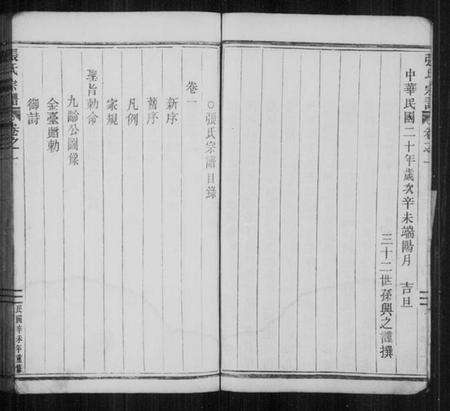 張氏宗譜 卷之一
中華民國二十年歲次辛未端陽月 吉旦
三十二世孫興之謹撰
○張氏宗譜目錄
卷一
新序
舊序
凡例
家規
聖旨勅命
九齡公圖像
金臺贈勅
御詩
張氏宗譜 卷之一
民國辛未年重修